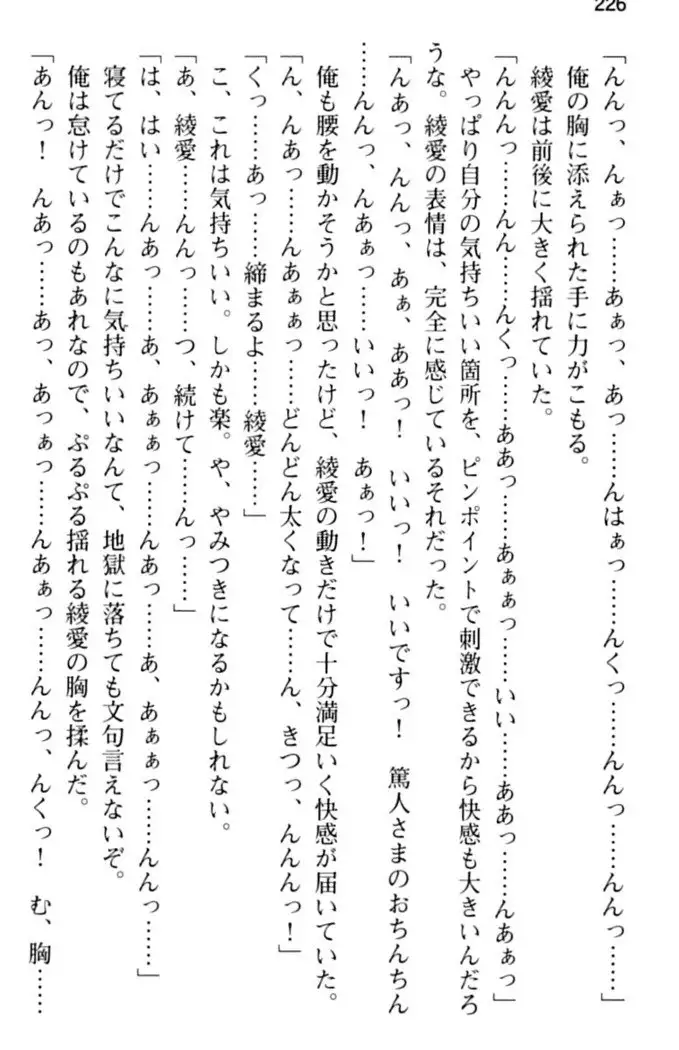 226
「んんっ、んぁっ……あぁっ、あっ……んはぁっ……んくっ……んんっ……んんっ……」
俺の胸に添えられた手に力がこもる。
綾愛は前後に大きく揺れていた。
「んんんっ……んん……んくっ……ああっ……あぁぁっ……いい……ああっ……んあぁっ」
やっぱり自分の気持ちいい箇所を、ピンポイントで刺激できるから快感も大きいんだろ
うな。綾愛の表情は、完全に感じているそれだった。
「んあっ、んんっ、あぁ、ああっ！　いいっ！　いいですっ！　篤人さまのおちんちん
……んんっ、んあぁっ……いいっ！　あぁっ！」
俺も腰を動かそうかと思ったけど、綾愛の動きだけで十分満足いく快感が届いていた。
「ん、んあっ……んあぁぁっ……どんどん太くなって……ん、きつっ、んんんっ！」
「くっ……あっ……締まるよ……綾愛……」
こ、これは気持ちいい。しかも楽。や、やみつきになるかもしれない。
「あ、綾愛……んんっ……つ、続けて……んっ……」
「は、はい……んあっ……あ、あぁぁっ……んあっ……あ、あぁぁっ……んんっ……」
寝てるだけでこんなに気持ちいいなんて、地獄に落ちても文句言えないぞ。
俺は怠けているのもあれなので、ぷるぷる揺れる綾愛の胸を揉んだ。
「あんっ！　んあっ……あっ、あっぁっ……んあぁっ……んんっ、んくっ！　む、胸……